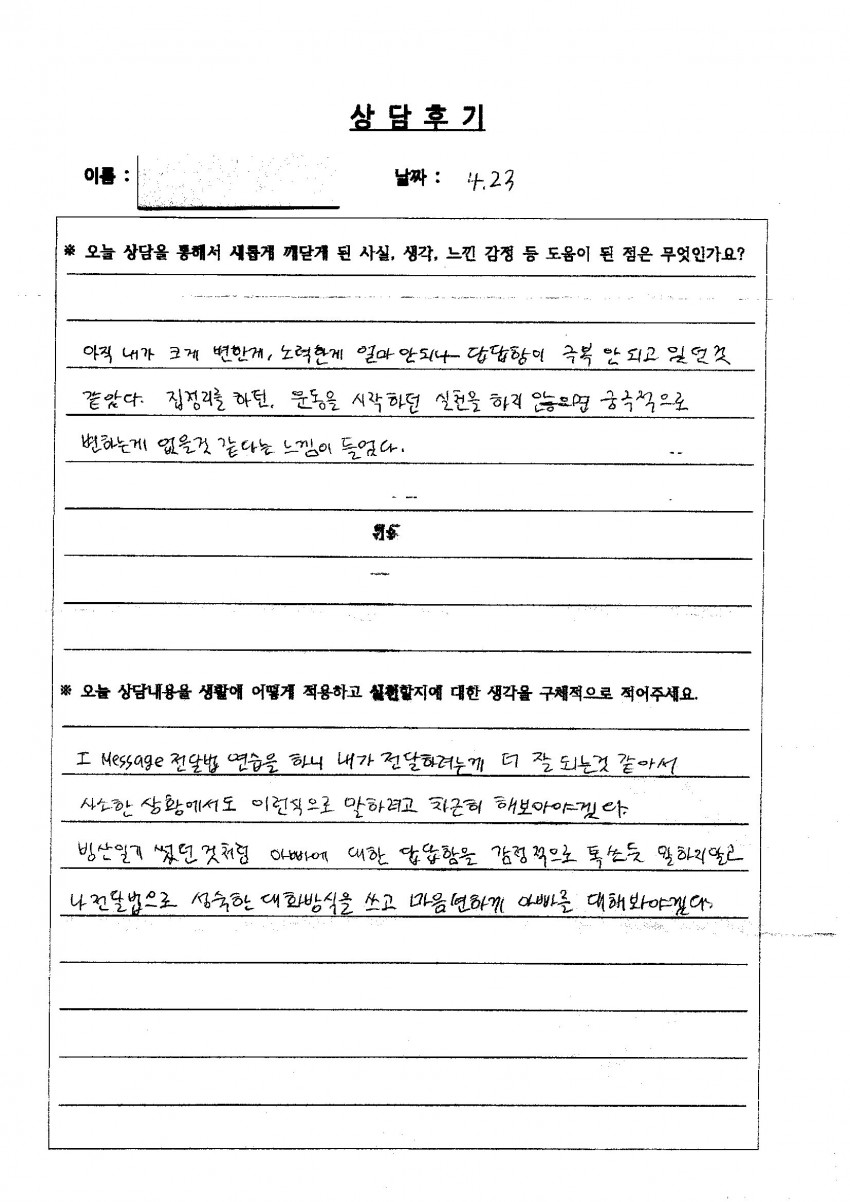 상담후기
이름 :
날짜 : 4.23
※ 오늘 상담을 통해서 새롭게 깨닫게 된 사실, 생각, 느낀 감정 등 도움이 된 점은 무엇인가요?
아직 내가 크게 변한게, 노력한게 얼마 안되나 답답함이 극복 안 되고 있던것
같았다. 집정리를 하던, 운동을 시작하던 실천을 하지 않으면 궁극적으로
변하는게 없을것 같다는 느낌이 들었다.
※ 오늘 상담내용을 생활에 어떻게 적용하고 실천할지에 대한 생각을 구체적으로 적어주세요.
I Message 전달법 연습을 하니 내가 전달하려는게 더 잘 되는것 같아서
사소한 상황에서도 이런식으로 말하려고 차근히 해보아야겠다.
빙산일기 썼던것처럼 아빠에 대한 답답함을 감정적으로 톡쏘듯 말하지않고
나전달법으로 성숙한 대화방식을 쓰고 마음편하게 아빠를 대해봐야겠다.